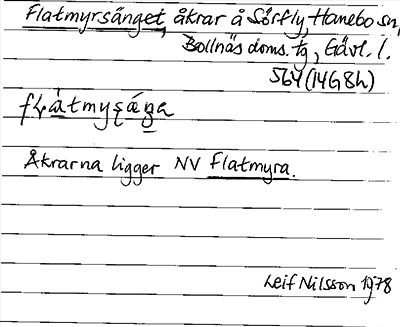 Flatmyrsänget, åkrar å Sörfly, Hanebo sn,
Bollnäs doms. tg, Gävl. l.
564(14G8h)
Åkrarna ligger NV Flatmyra.
Leif Nilsson 1978